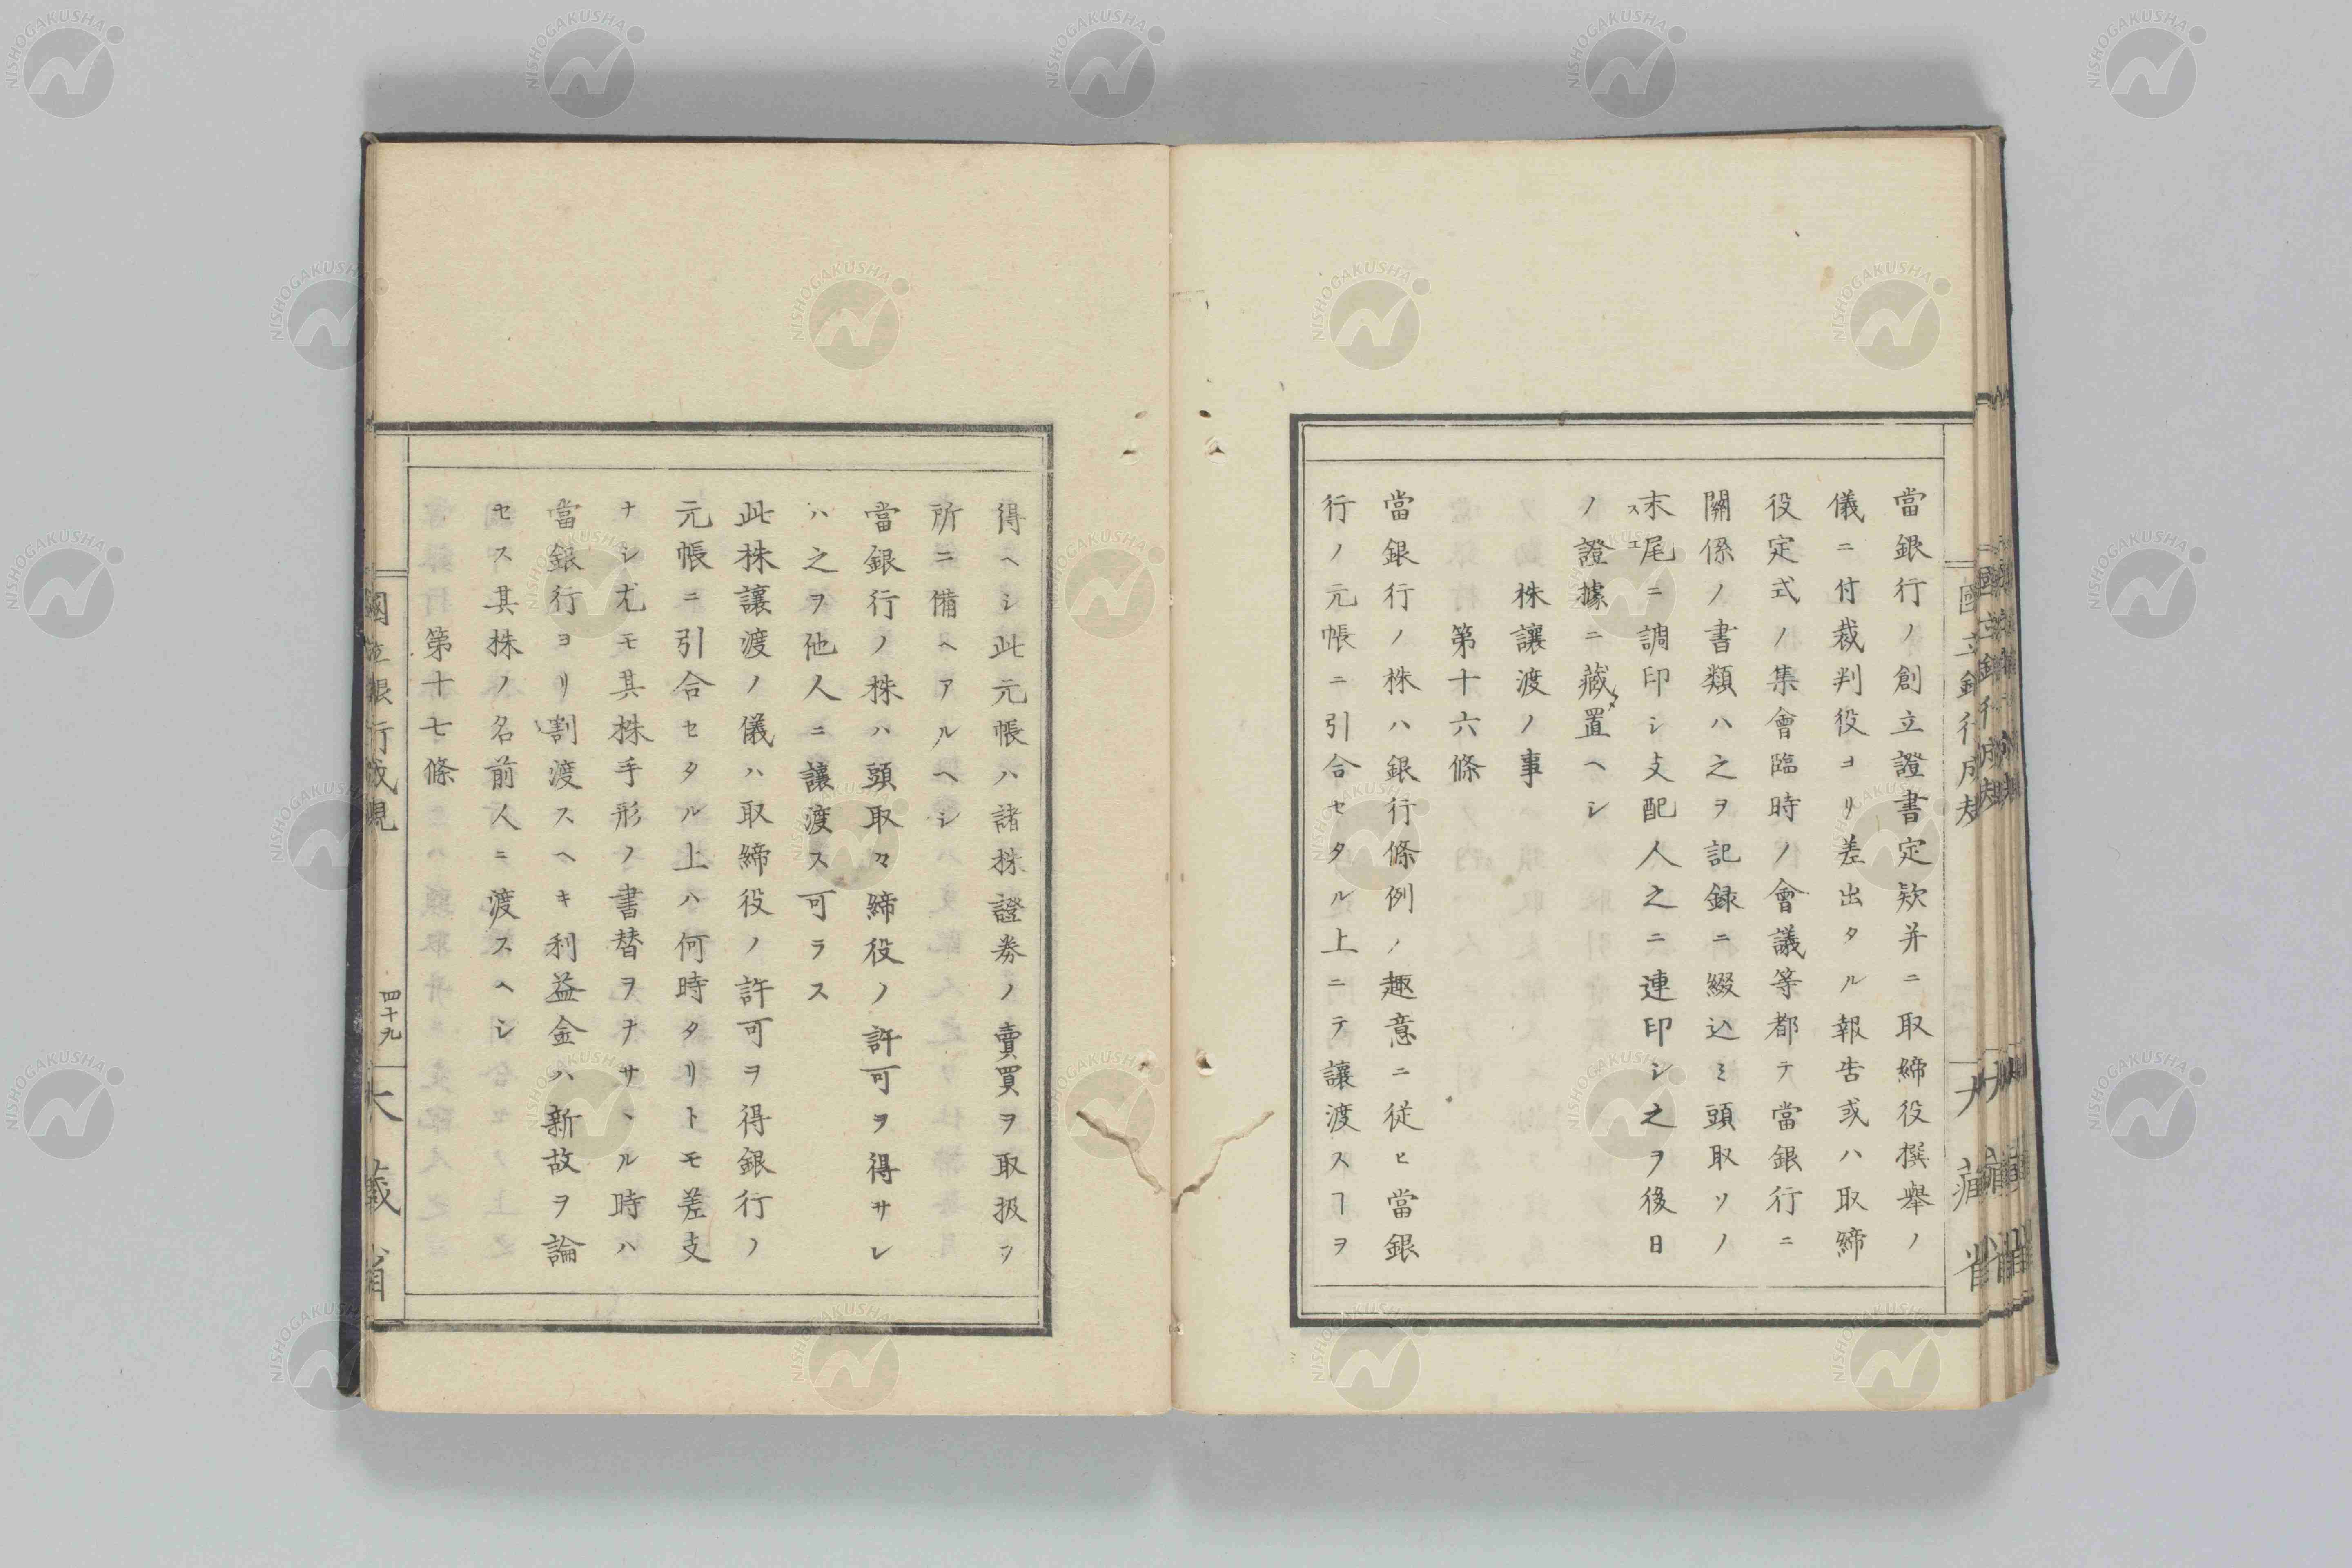 當銀行ノ創立證書定欵并ニ取締役撰舉ノ
儀ニ付裁判役ヨリ差出タル報告或ハ取締
役定式ノ集會臨時ノ會議等都テ當銀行ニ
關係ノ書類ハ之ヲ記録ニ綴込ミ頭取ソノ
末尾ニ調印シ支配人之ニ連印シ之ヲ後日
スエ
ノ證據ニ藏置ヘシ
株讓渡ノ事
第十六條
當銀行ノ株ハ銀行條例ノ趣意ニ従ヒ當銀
行ノ元帳ニ引合セタル上ニテ讓渡スヿヲ
得ヘシ此元帳ハ諸株證券ノ賣買ヲ取扱フ
所ニ備ヘアルヘシ
當銀行ノ株ハ頭取々締役ノ許可ヲ得サレ
ハ之ヲ他人ニ讓渡ス可ラス
此株讓渡ノ儀ハ取締役ノ許可ヲ得銀行ノ
元帳ニ引合セタル上ハ何時タリトモ差支
ナシ尤モ其株手形ノ書替ヲナサヽル時ハ
當銀行ヨリ割渡スヘキ利益金ハ新故ヲ論
セス其株ノ名前人ニ渡スヘシ
第十七條
國立銀行成規
四十九
大藏省
NISHOGAKUSHA